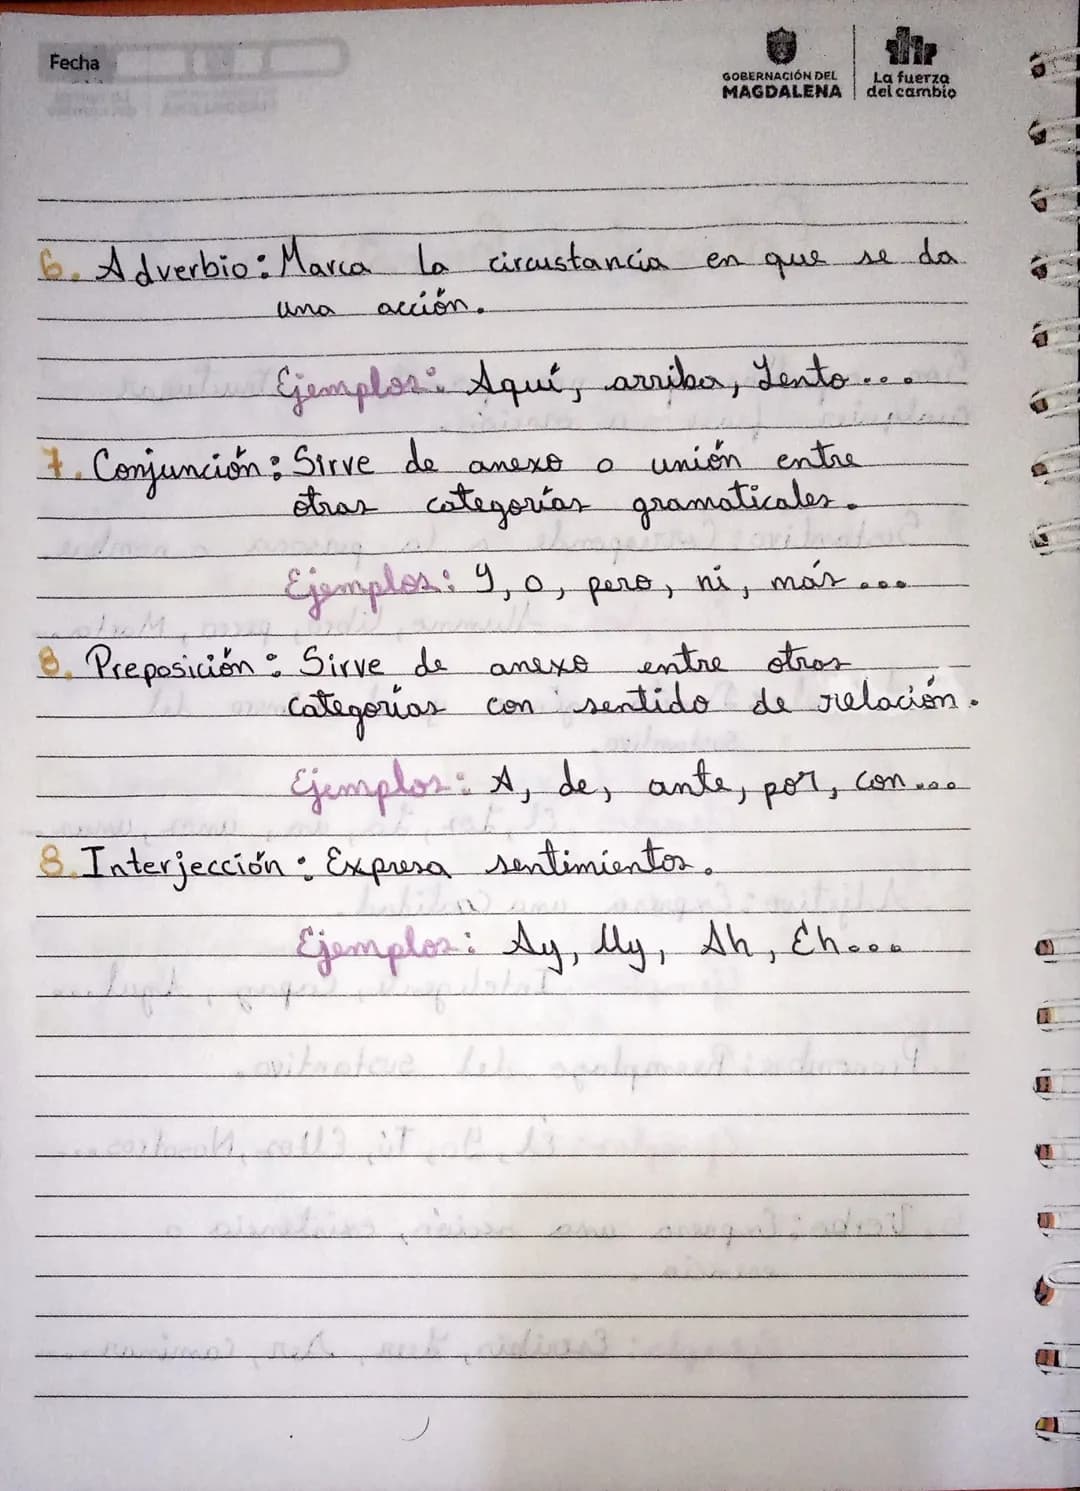 Fecha
GOBERNACIÓN DEL
MAGDALENA
La fuerza
del cambio
6. Adverbio: Marca la circustancia en que se da
una acción.
Ejemplos: Aquí, arriba, Lento...
7. Conjunción: Sirve de anexo o unión entre
otras categorías gramaticales.
Ejemplos: Y, o, pero, ni, más...
8. Preposición: Sirve de anexo entre otras
categorías con sentido de relación.
Ejemplos: A, de, ante, por, con...
8. Interjección: Expresa sentimientos.
Ejemplos: Ay, Uy, Ah, Eh...